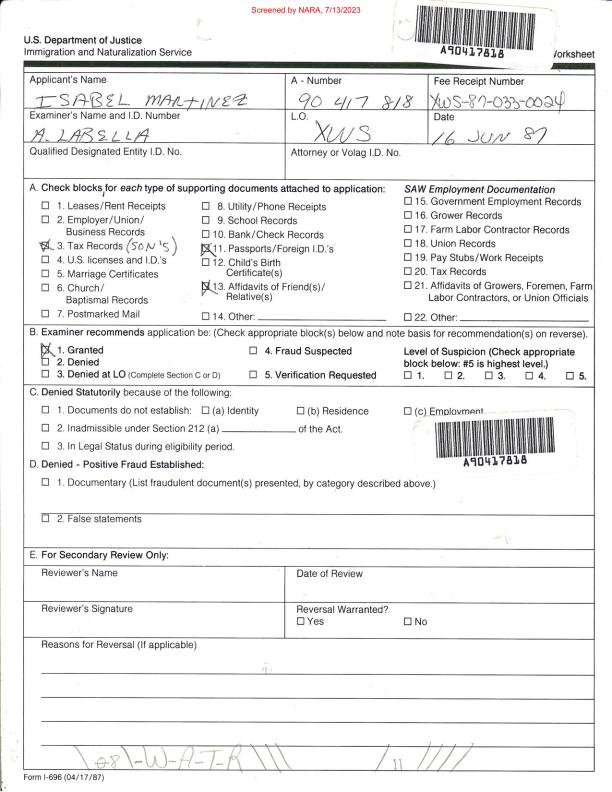 Screened by NARA, 7/13/2023
U.S. Department of Justice
Immigration and Naturalization Service
A90417818
Worksheet
Applicant's Name
ISABEL MARTINEZ
A - Number
90 417 818
Fee Receipt Number
XWS-87-033-0024
Examiner's Name and I.D. Number
A. LABELLA
L.O.
XWS
Date
16 JUN 87
Qualified Designated Entity I.D. No.
Attorney or Volag I.D. No.
A. Check blocks for each type of supporting documents attached to application:
☐ 1. Leases/Rent Receipts
☐ 2. Employer/Union/
Business Records
☒ 3. Tax Records (SON'S)
☐ 4. U.S. licenses and I.D.'s
☐ 5. Marriage Certificates
☐ 6. Church/
Baptismal Records
☐ 7. Postmarked Mail
☐ 8. Utility/Phone Receipts
☐ 9. School Records
☐ 10. Bank/Check Records
☒ 11. Passports/Foreign I.D.'s
☐ 12. Child's Birth
Certificate(s)
☒ 13. Affidavits of Friend(s)/
Relative(s)
☐ 14. Other:
SAW Employment Documentation
☐ 15. Government Employment Records
☐ 16. Grower Records
☐ 17. Farm Labor Contractor Records
☐ 18. Union Records
☐ 19. Pay Stubs/Work Receipts
☐ 20. Tax Records
☐ 21. Affidavits of Growers, Foremen, Farm
Labor Contractors, or Union Officials
☐ 22. Other:
B. Examiner recommends application be: (Check appropriate block(s) below and note basis for recommendation(s) on reverse).
☒ 1. Granted
☐ 2. Denied
☐ 3. Denied at LO (Complete Section C or D)
☐ 4. Fraud Suspected
☐ 5. Verification Requested
Level of Suspicion (Check appropriate
block below: #5 is highest level.)
☐ 1. ☐ 2. ☐ 3. ☐ 4. ☐ 5.
C. Denied Statutorily because of the following:
☐ 1. Documents do not establish: ☐ (a) Identity ☐ (b) Residence ☐ (c) Employment
☐ 2. Inadmissible under Section 212 (a) of the Act.
☐ 3. In Legal Status during eligibility period.
A90417818
D. Denied - Positive Fraud Established:
☐ 1. Documentary (List fraudulent document(s) presented, by category described above.)
☐ 2. False statements
E. For Secondary Review Only:
Reviewer's Name
Date of Review
Reviewer's Signature
Reversal Warranted?
☐ Yes ☐ No
Reasons for Reversal (If applicable)
Form I-696 (04/17/87)